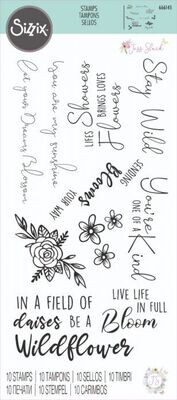 Sizzix
STAMPS
TAMPONS
SELLOS
666145
Jess Slack
Let your Dreams Blossom
You are my sunshine
LIFES
Showers
BRINGS LOVES
Flowers
Stay Wild
SENDING
Blooms
YOUR WAY
You're
ONE OF A
Kind
IN A FIELD OF
daisies BE A
Wildflower
LIVE LIFE
IN FULL
Bloom
10 STAMPS | 10 TAMPONS | 10 SELLOS | 10 TIMBRI
10 ПЕЧАТИ | 10 STEMPEL | 10 CARIMBOS